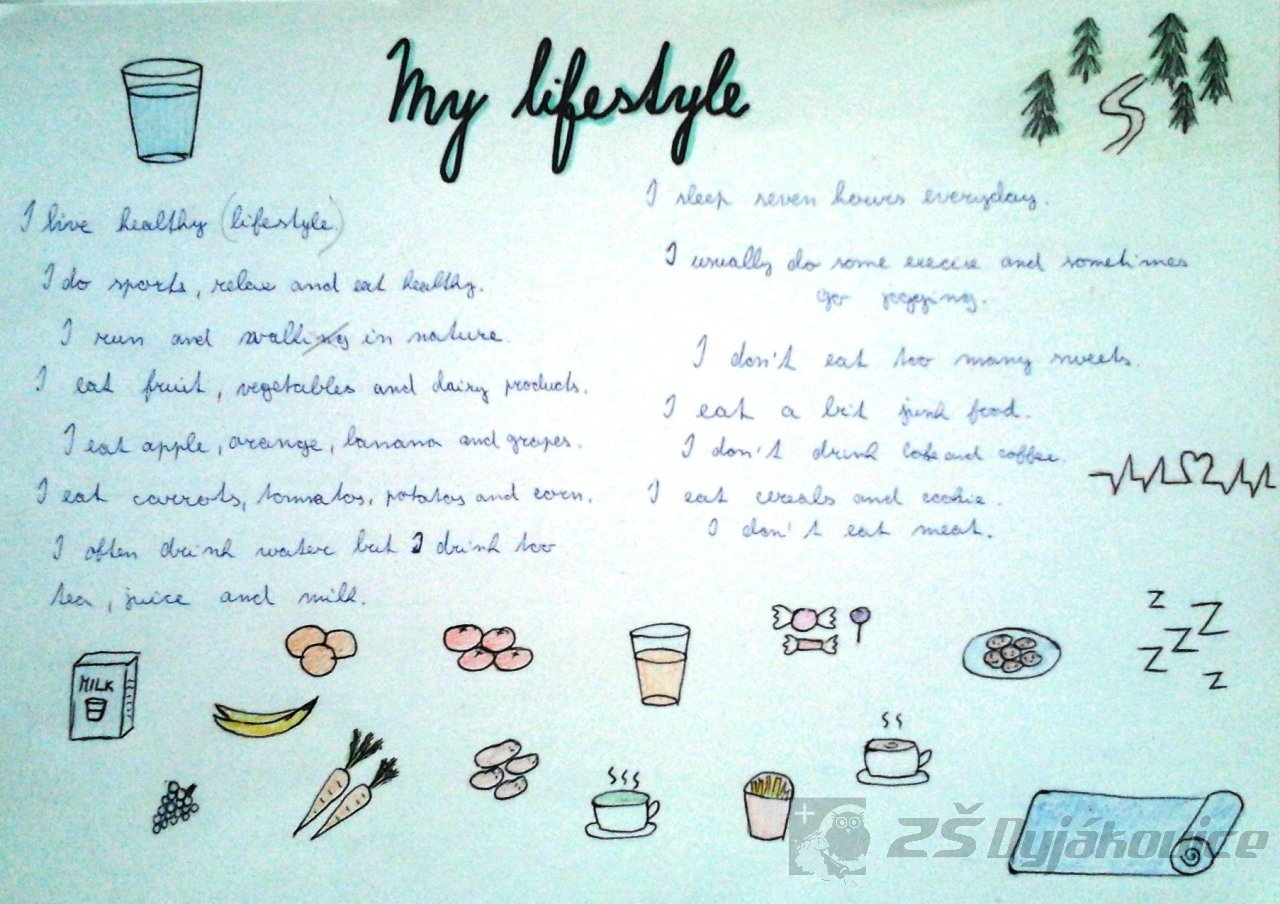 My lifestyle
I live healthy (lifestyle.)
I do sports, relax and eat healthy.
I run and walking in nature.
I eat fruit, vegetables and dairy products.
I eat apple, orange, banana and grapes.
I eat carrots, tomatos, potatos and corn.
I often drink water but I drink too
tea, juice and milk.
I sleep seven hours everyday.
I usually do some execise and sometimes
go jogging.
I don't eat too many sweets.
I eat a bit junk food.
I don't drink and coffee.
I eat cereals and cookie.
I don't eat meat.
MILK
Z Z Z Z Z
ZŠ Dyjákovice